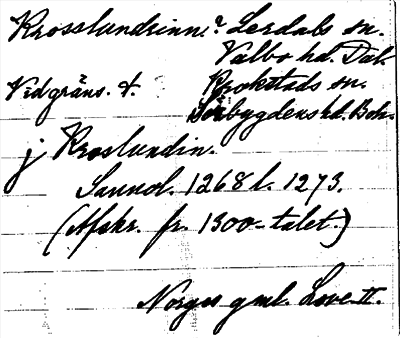 Krosslundrinn? Lerdals sn.
Valbo hd. Dal.
Vid gräns. t. Krokstads sn.
Sörbygdens hd. Boh.
j Kroslundin.
Sannol. 1268 l. 1273.
(Afskr. fr. 1300-talet.)
Norges gml. Love II.